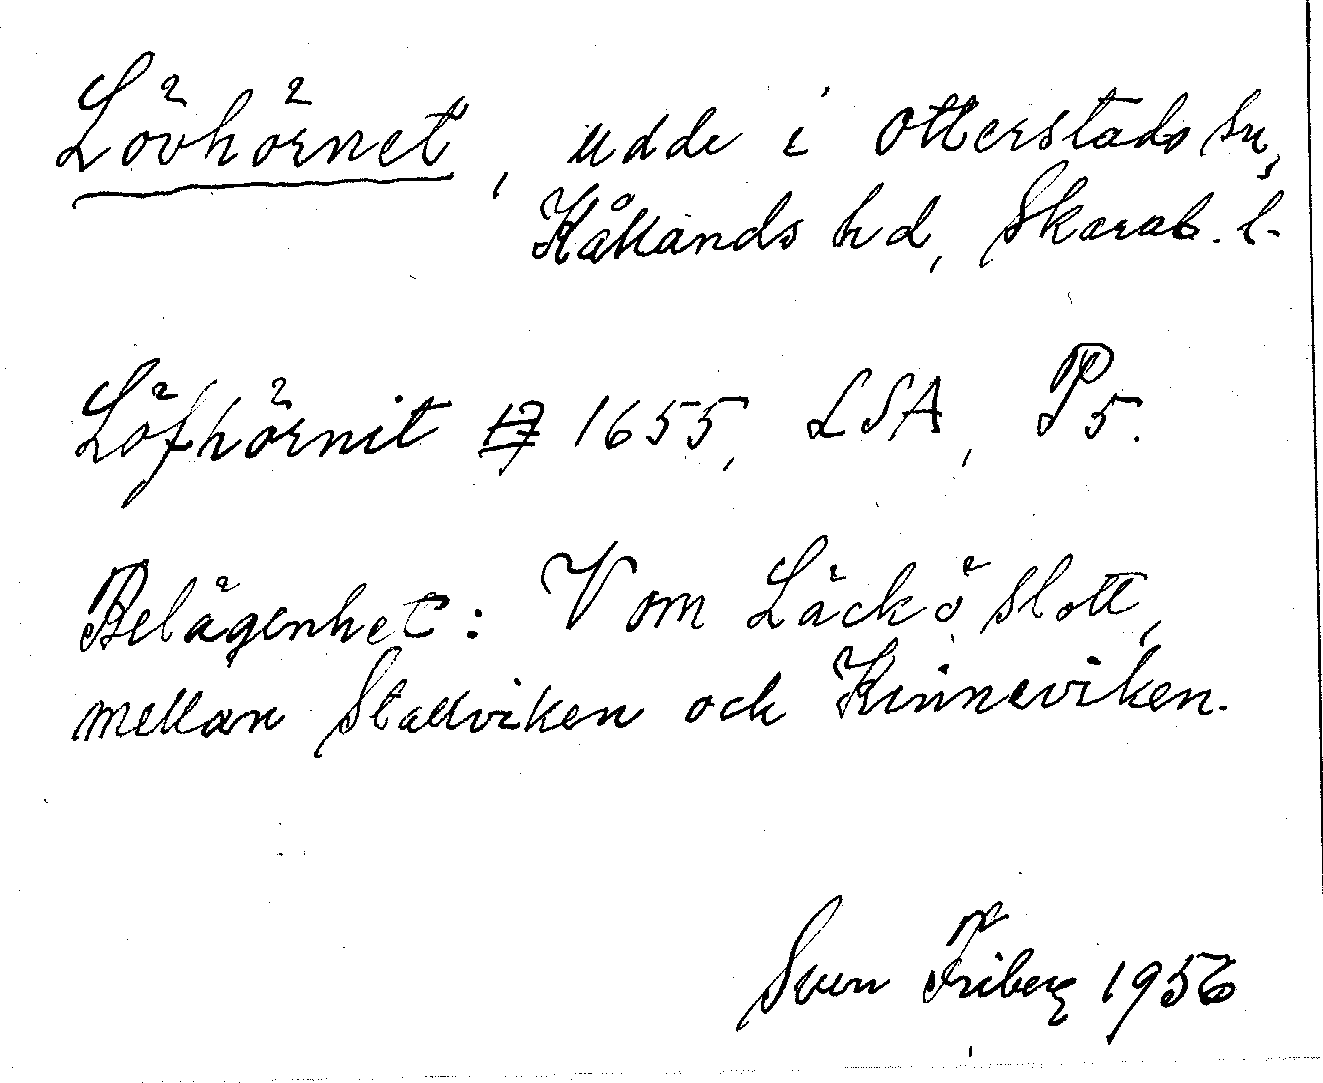 Lövhörnet, udde i Otterstads sn,
Kållands hd, Skarab. l.
Löfhörnit 1655, LSA, P5.
Belägenhet: V om Läckö slott,
mellan Stallviken och Kinneviken.
Sven Friberg 1956